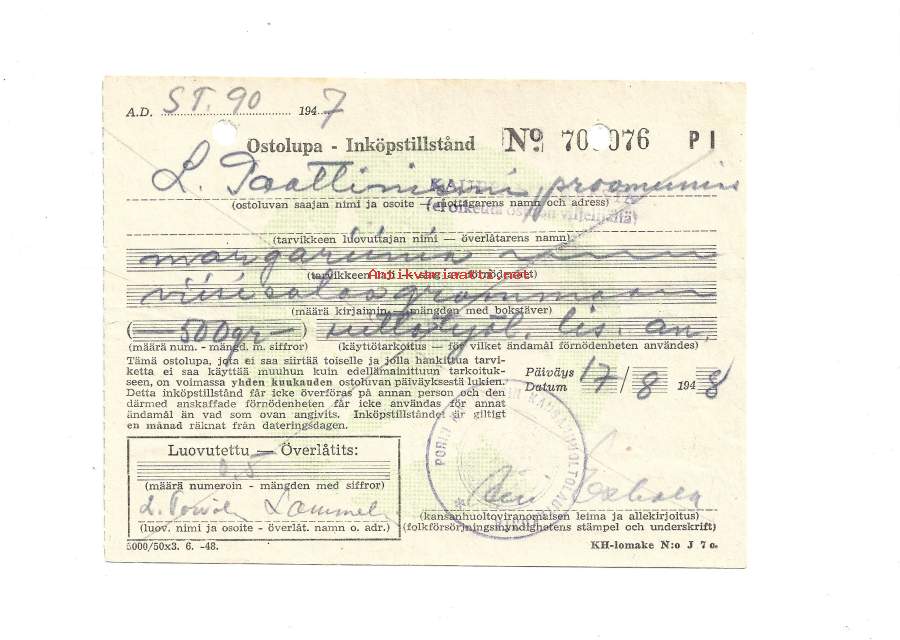 A.D. ST. 90 1947
Ostolupa - Inköpstillstånd No 70 076 P I
L.
(ostoluvan saajan nimi ja osoite — mottagarens namn och adress)
(tarvikkeen luovuttajan nimi — överlåtarens namn)
margariinia
(tarvikkeen laji — slag av förnödenhet)
Antikvariaatti.net
viisisataa grammaa
(määrä kirjaimin — mängden med bokstäver)
(— 500gr —) lis. an.
(määrä num. - mängd. m. siffror) (käyttötarkoitus — för vilket ändamål förnödenheten användes)
Tämä ostolupa, jota ei saa siirtää toiselle ja jolla hankittua tarvi-
ketta ei saa käyttää muuhun kuin edellämainittuun tarkoituk-
seen, on voimassa yhden kuukauden ostoluvan päiväyksestä lukien.
Detta inköpstillstånd får icke överföras på annan person och den
därmed anskaffade förnödenheten får icke användas för annat
ändamål än vad som ovan angivits. Inköpstillståndet är giltigt
en månad räknat från dateringsdagen.
Päiväys
Datum 17/8 1948
Luovutettu — Överlåtits:
0.5
(määrä numeroin - mängden med siffror)
L.
(luov. nimi ja osoite - överlåt. namn o. adr.)
PORIN
(kansanhuoltoviranomaisen leima ja allekirjoitus)
(folkförsörjningsmyndighetens stämpel och underskrift)
5000/50x3. 6. -48.
KH-lomake N:o J 7 c.